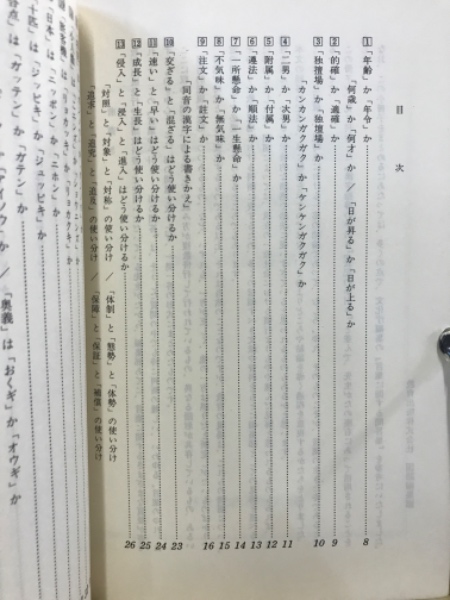 目次
1 「年齢」か「年令」か 8
「何歳」か「何才」か / 「日が昇る」か「日が上る」か
2 「的確」か「適確」か 9
3 「独擅場」か「独壇場」か 10
「カンカンガクガク」か「ケンケンガクガク」か
4 「二男」か「次男」か 11
5 「附属」か「付属」か 12
6 「遵法」か「順法」か 13
7 「一所懸命」か「一生懸命」か 14
8 「不気味」か「無気味」か 15
9 「注文」か「註文」か 16
「同音の漢字による書きかえ」
10 「交ざる」と「混ざる」はどう使い分けるか 23
11 「速い」と「早い」はどう使い分けるか 24
12 「成長」と「生長」はどう使い分けるか 25
13 「侵入」と「浸入」と「進入」はどう使い分けるか 26
「対照」と「対象」と「対称」の使い分け / 「体制」と「態勢」と「体勢」の使い分け
「追求」と「追究」と「追及」の使い分け / 「保障」と「保証」と「補償」の使い分け
「リョカッキ」か「リョカクキ」か
「日本」は「ニホン」か「ニッポン」か
「十匹」は「ジッピキ」か「ジュッピキ」か
「ガッテン」か「ガテン」か
「奥義」は「おくギ」か「オウギ」か